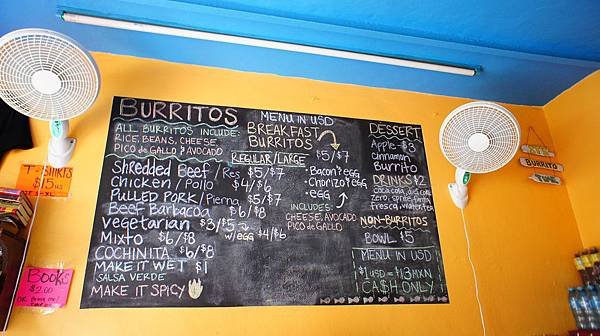 BURRITOS
ALL BURRITOS INCLUDE:
RICE, BEANS, CHEESE,
PICO de GALLO & AVOCADO
REGULAR/LARGE
Shredded Beef/Res $6/$8
Chicken/Pollo $4/$6
PULLED PORK/Pierna $5/$7
Beef Barbacoa $6/$8
vegetarian $3/$5
w/egg $4/$6
MIXTO $6/$8
COCHINITA $6/$8
MAKE IT WET $1
SALSA VERDE
MAKE IT SPICY
MENU IN USD
BREAKFAST
BURRITOS
$5/$7
•Bacon & egg
•Chorizo & egg
•egg
INCLUDES:
CHEESE, AVOCADO
PICO de GALLO
DESSERT
Apple- $3
cinnamon
Burrito
DRINKS $2
coca cola, coke
zero, sprite, fanta
fresca, water, tea
NON-BURRITOS
BOWL $5
MENU IN USD
$1 USD = $18 MXN
CASH ONLY
T-SHIRTS
$15 US
BOOKS
$2.00
BURRITO
TIME